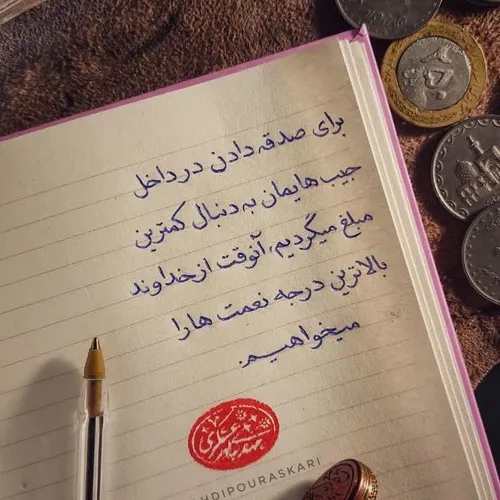 برای صدقه دادن در داخل
جیب هایمان به دنبال کمترین
مبلغ میگردیم، آنوقت از خداوند
بالاترین درجه نعمت ها را
میخواهیم.
HDIPOURASKARI